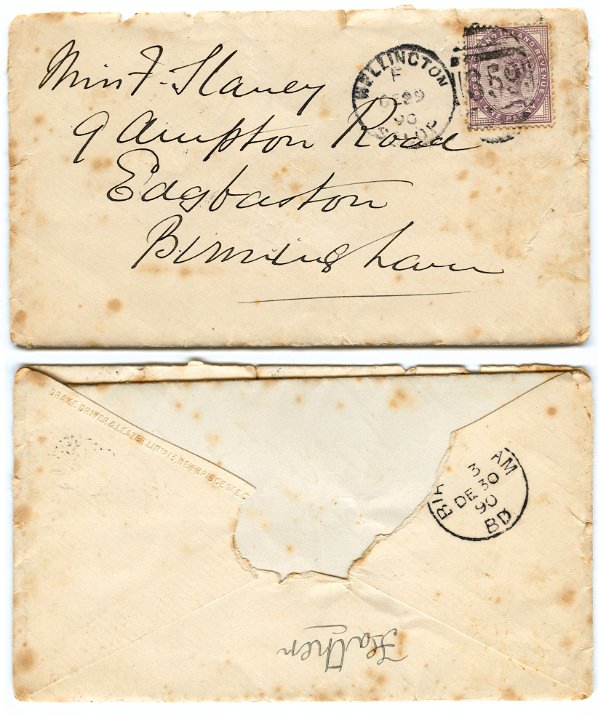 Miss F. Slaney
9 Ampton Road
Edgbaston
Birmingham
WELLINGTON
F
DE 29
90
SALOP
INLAND REVENUE
ONE PENNY
DRAKE, DRIVER & LEAVER, LIMITED
3 AM
DE 30
90
BD